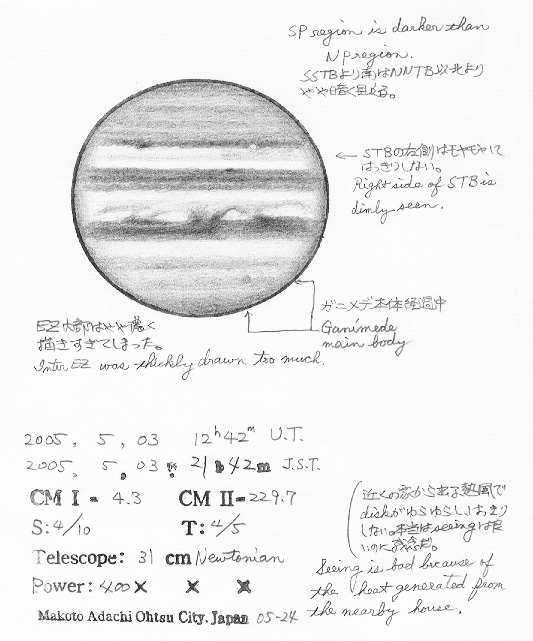 SP region is darker than
NP region.
SSTBより南はNNTB以北より
やや暗く見える。
← STBの右側はモヤモヤにて
はっきりしない。
Right side of STB is
dimly seen.
ガニメデ本体経過中
Ganímede
main body
EZ内部はやや濃く
描きすぎてしまった。
Inter EZ was thickly drawn too much.
2005, 5, 03 12h42m U.T.
2005, 5, 03, 21h42m J.S.T.
CM I = 4.3 CM II=229.7
S:4/10 T:4/5
Telescope: 31 cm Newtonian
Power: 400X X X
Makoto Adachi Ohtsu City. Japan 05-24
近くの家から出る熱風で
diskがゆらゆらし、はっきり
しない。本当はseeingは良
いのに、残念だ。
Seeing is bad because of
the heat generated from
the nearby house.